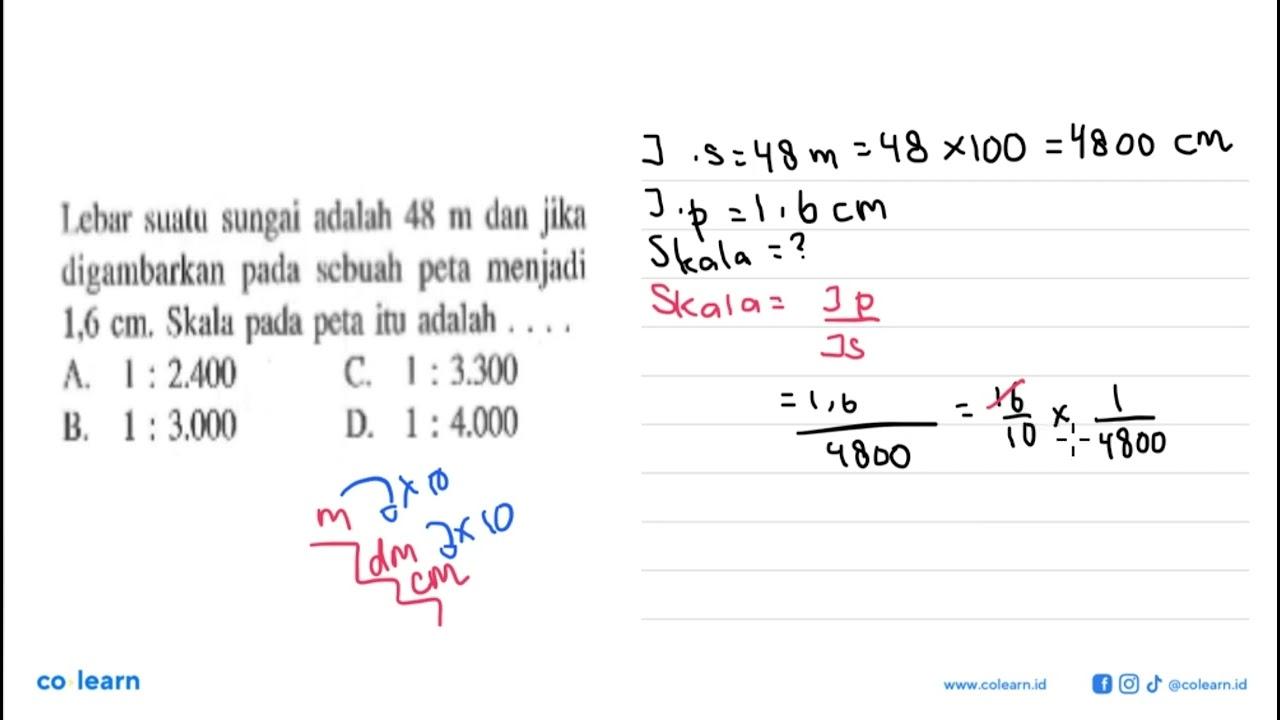 Lebar suatu sungai adalah 48 m dan jika
digambarkan pada sebuah peta menjadi
1,6 cm. Skala pada peta itu adalah . . . .
A. 1 : 2.400 C. 1 : 3.300
B. 1 : 3.000 D. 1 : 4.000
m ×10
dm ×10
cm
J.s = 48 m = 48 × 100 = 4800 cm
J.p = 1,6 cm
Skala = ?
Skala = Jp
Js
= 1,6 = 16 × 1
4800 10 4800
co learn
www.colearn.id @colearn.id